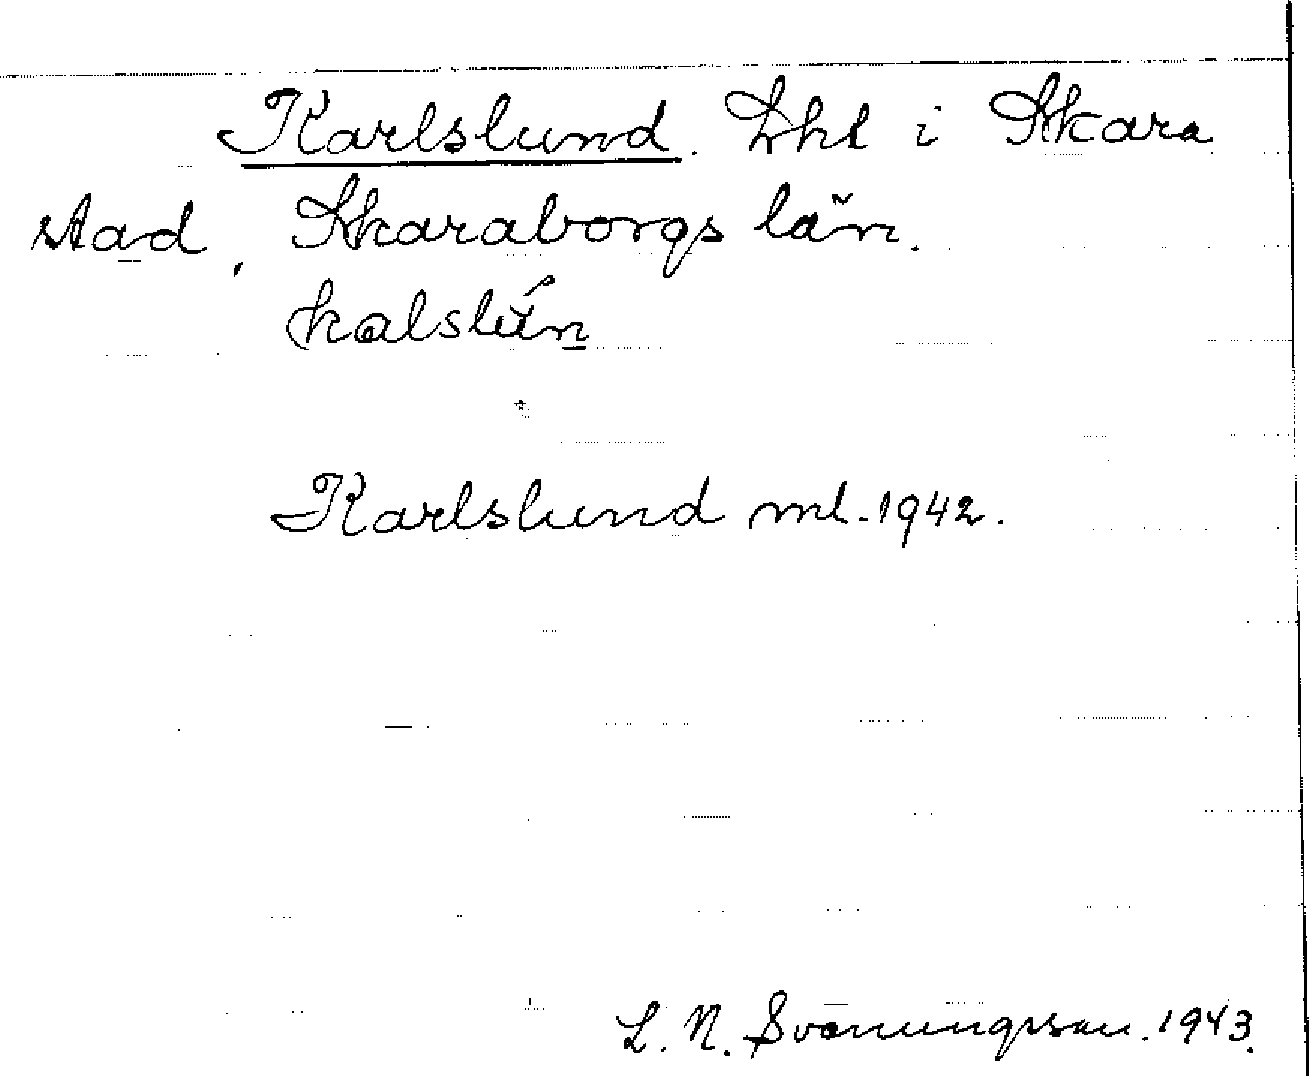 Karlslund. Lht i Skara
stad, Skaraborgs län.
Karlslund ml. 1942.
L. N. Svanungsson. 1943.